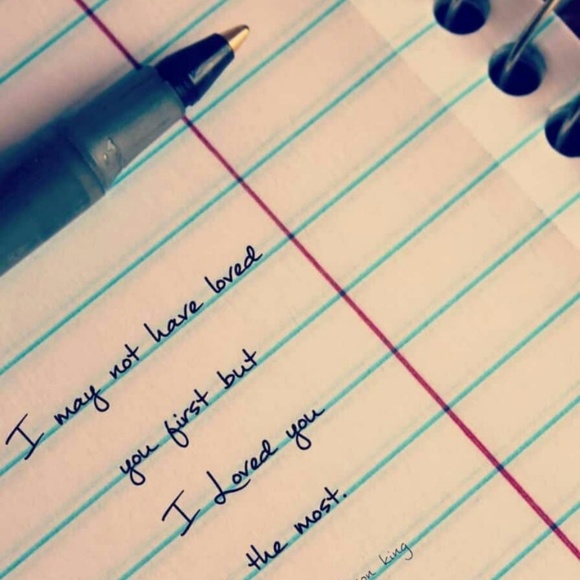 I may not have loved
you first but
I Loved you
the most.
king